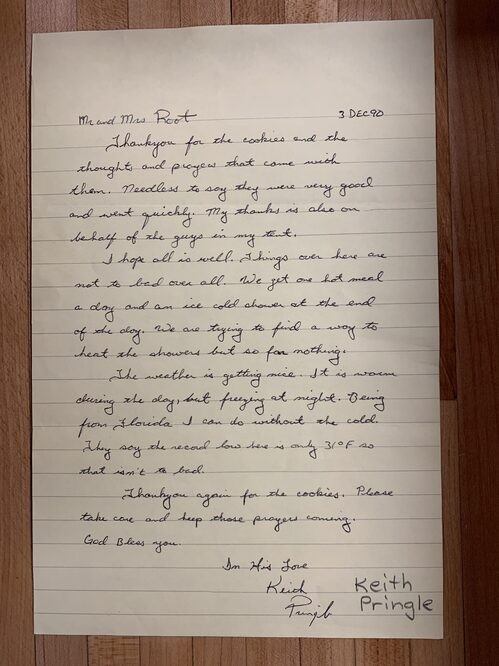 Mr and Mrs Root 3 DEC 90
Thankyou for the cookies and the
thoughts and prayers that came with
them. Needless to say they were very good
and went quickly. My thanks is also on
behalf of the guys in my tent.
I hope all is well. Things over here are
not to bad over all. We get one hot meal
a day and an ice cold shower at the end
of the day. We are trying to find a way to
heat the showers but so far nothing.
The weather is getting nice. It is warm
during the day, but freezing at night. Being
from Florida I can do without the cold.
They say the record low here is only 31°F so
that isn't to bad.
Thankyou again for the cookies. Please
take care and keep those prayers coming.
God Bless you.
In His Love
Keith
Pringle
Keith
Pringle